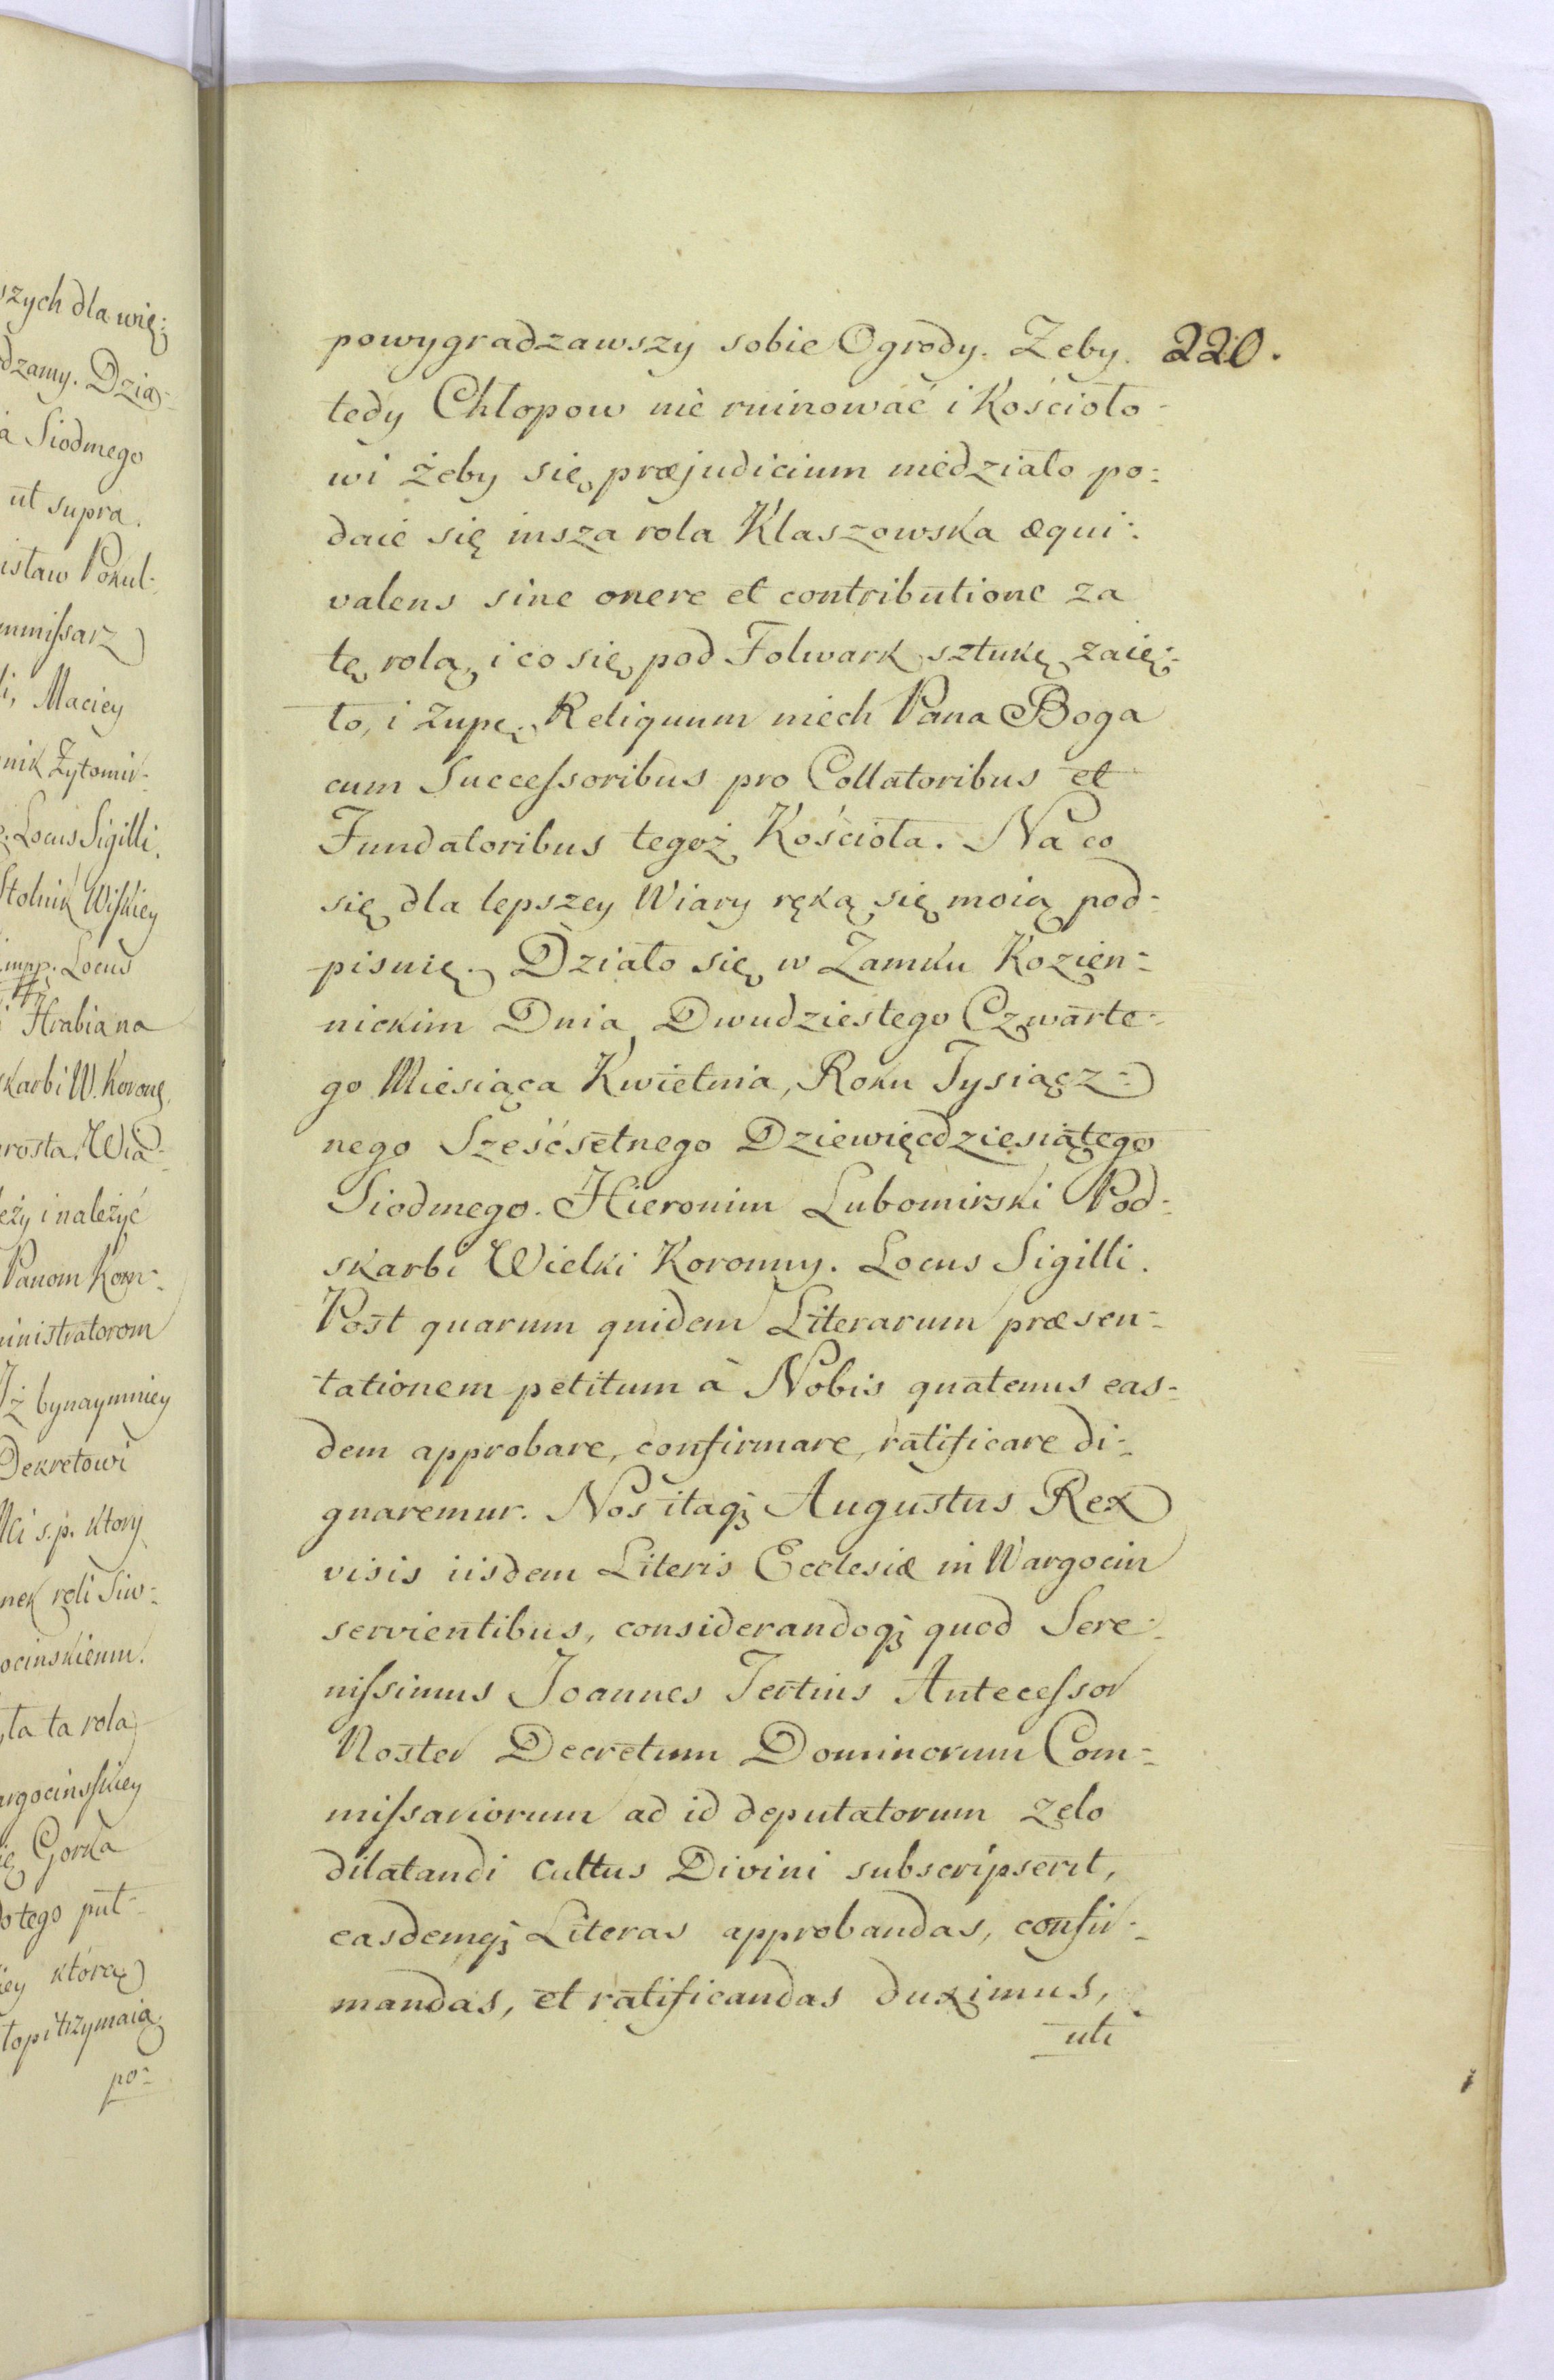 szych dla wię-
dzamy. Dzia-
a Siodmego
ut supra.
istaw Pokul-
mmissarz
i, Maciey
nik Zytomir-
Locus Sigilli.
Stolnik Wiskiey
mpp. Locus
Hrabia na
skarbi W. Koronę.
rosta, Wia-
eży i należyć
Panom Kom-
ministratorom
Iż bynaymniey
Dekretowi
Mci s.p. ktory
nek roli Siw-
ocinskienm.
ta ta rola,
argocinsskiey
ię Gorka
tego put-
iey którey
topi trzymaią
po-
220.
powygradzawszy sobie Ogrody. Zeby
tedy Chłopow nie ruinować i Kościoło-
wi żeby się præjudicium niedziało po-
daie się insza rola Klaszowska æqui-
valens sine onere et contributione za
tę rolą, i co się pod Folwark sztukę zaię-
to, i zupę. Reliquum niech Pana Boga
cum Successoribus pro Collatoribus et
Fundatoribus tegoż Kościoła. Na co
się dla lepszey Wiary ręką się moią pod-
pisuię. Działo się w Zamku Kozien-
nickim Dnia Dwudziestego Czwarte-
go Miesiąca Kwietnia, Roku Tysiącz-
nego Sześćsetnego Dziewięcdziesiątego
Siodmego. Hieronim Lubomirski Pod-
skarbi Wielki Koronny. Locus Sigilli.
Post quarum quidem Literarum præsen-
tationem petitum à Nobis quatenus eas-
dem approbare, confirmare, ratificare di-
gnaremur. Nos itaq; Augustus Rex
visis iisdem Literis Ecclesiæ in Wargocin
servientibus, considerandoq; quod Sere-
nissimus Joannes Tertius Antecessor
Noster Decretum Dominorum Com-
missariorum ad id deputatorum zelo
dilatandi Cultus Divini subscripserit,
easdemq; Literas approbandas, confir-
mandas, et ratificandas duximus,
uti